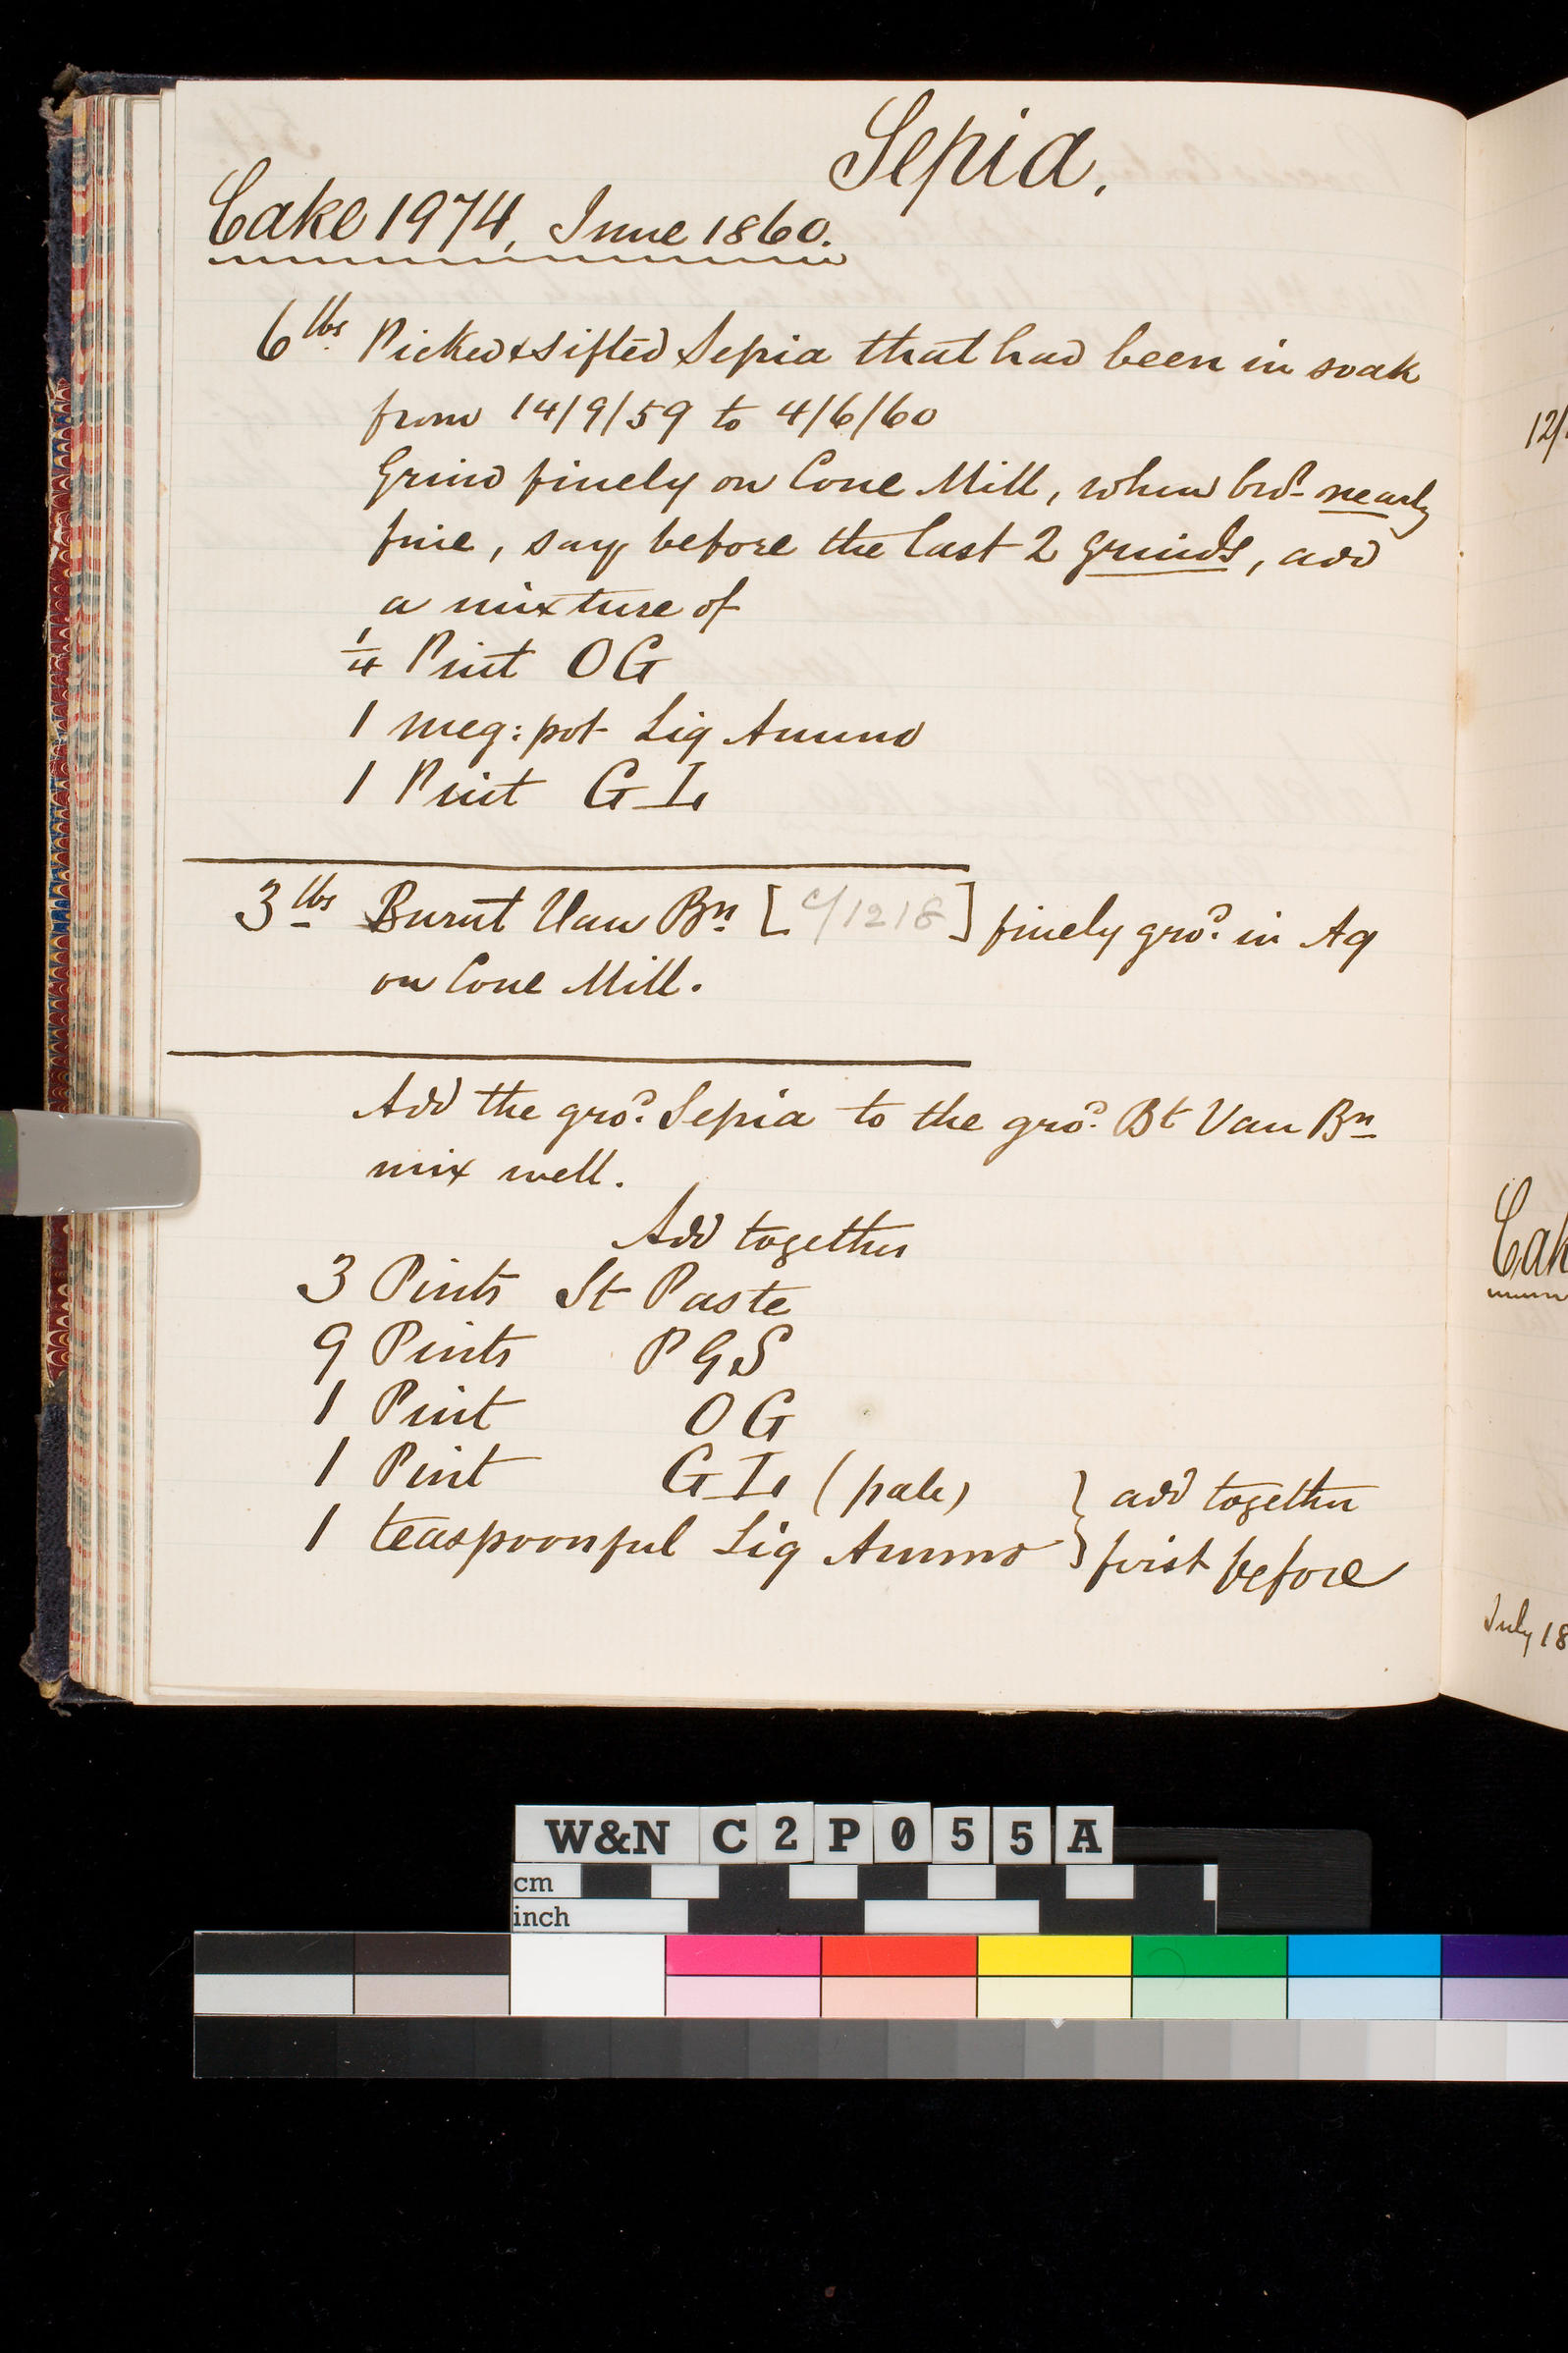 Sepia.
Cake 1974, June 1860.
6 lbs Picked & sifted Sepia that had been in soak
from 14/9/59 to 4/6/60
Grind finely on Cone Mill, when nearly
fine, say before the last 2 grinds, add
a mixture of
1/4 Pint OG
1 meg: pot Liq Ammo
1 Pint GL
3 lbs Burnt Van Bn [c/1218] finely gro.d in Aq
on Cone Mill.
Add the gro.d Sepia to the gro.d Bt Van Bn
mix well.
Add together
3 Pints St Paste
9 Pints PGS
1 Pint OG
1 Pint GL (pale) } add together
1 teaspoonful Liq Ammo } first before
12/
Cak
July 18
W&N C2P055A
cm
inch